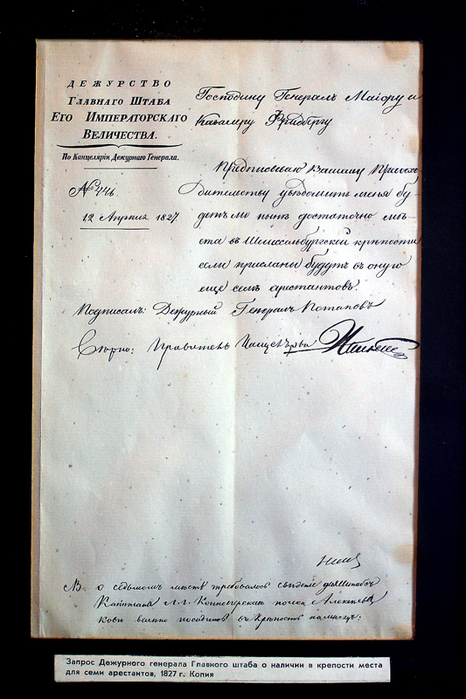 ДЕЖУРСТВО
Главнаго Штаба
Его Императорскаго
Величества.
По Канцеляріи Дежурнаго Генерала.
№ 446
12 Апреля 1827
Господину Генералъ Маіору и
Кавалеру Фридбергу
Предписываю Вашему Превосхо
дительству уведомить меня бу-
детъ ли ныне достаточно мес-
та въ Шлиссельбургской крепости
если присланы будутъ въ оную
еще семь арестантовъ.
Подписалъ: Дежурный Генералъ Потаповъ
Верно: Правитель Канцеляріи
о седьмомъ месте требовалось сведение для
Капитана Л. Г. Конноегерскаго полка
въ крепость
Запрос Дежурного генерала Главного штаба о наличии в крепости места
для семи арестантов, 1827 г. Копия